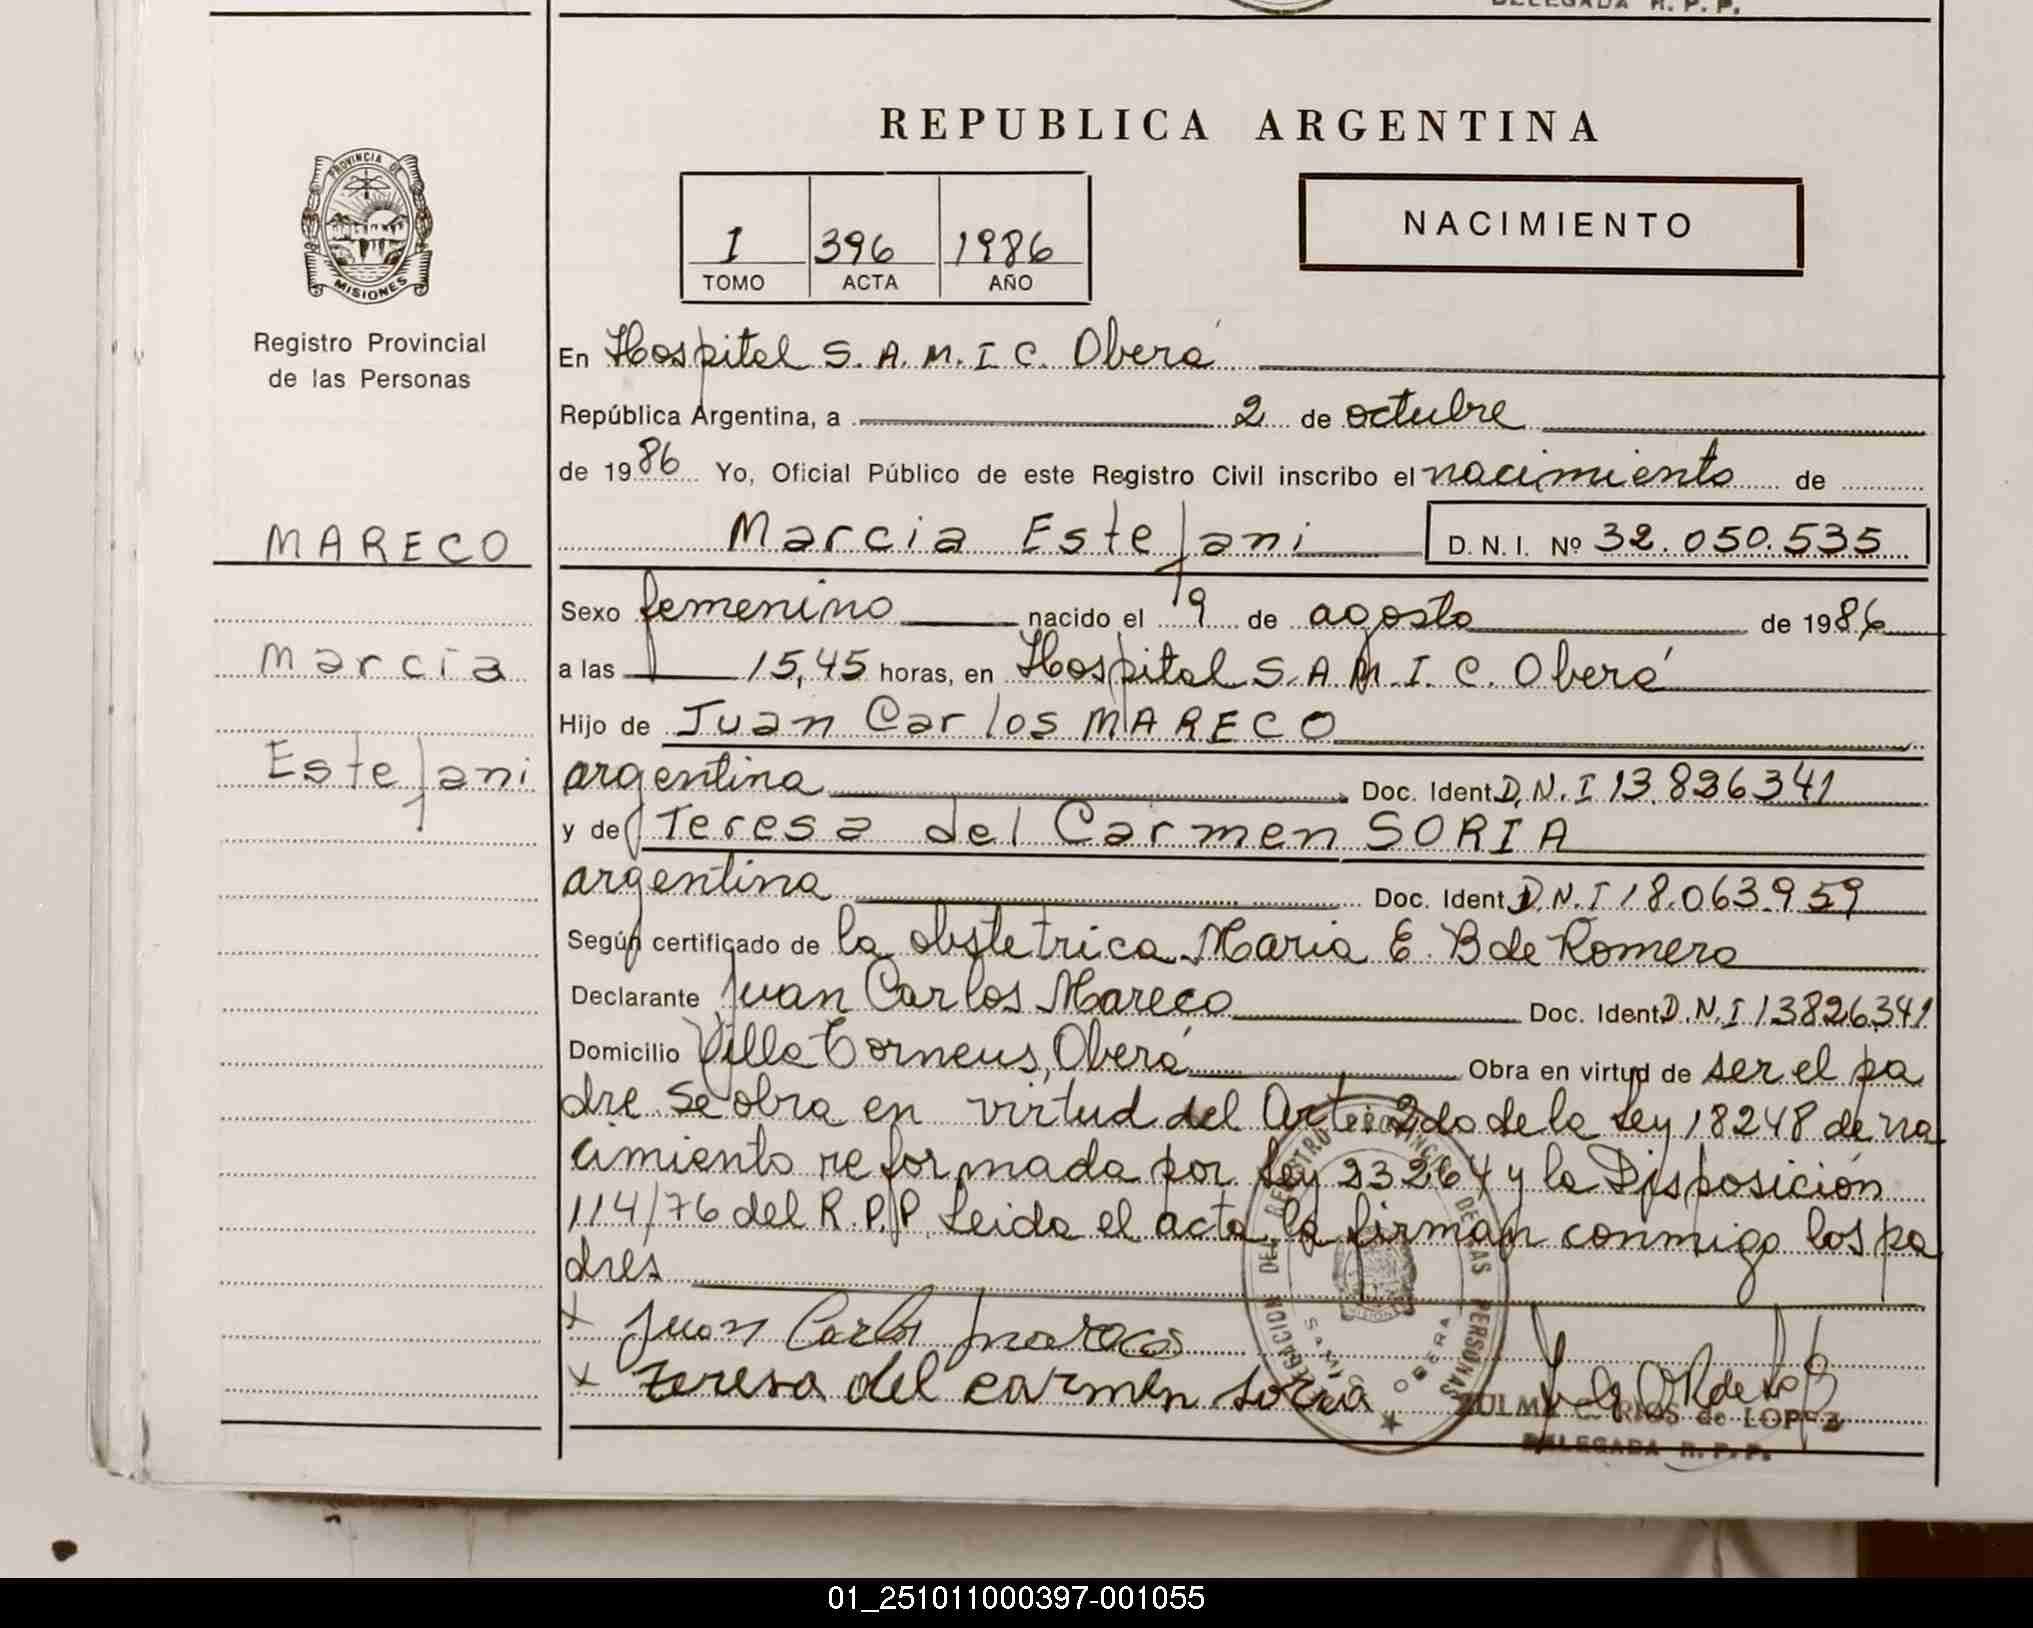 DELEGADA R. P. P.
REPUBLICA ARGENTINA
PROVINCIA DE
MISIONES
Registro Provincial
de las Personas
I 396 1986
TOMO ACTA AÑO
NACIMIENTO
En Hospital S. A. M. I. C. Oberá
República Argentina, a 2 de octubre
de 1986 Yo, Oficial Público de este Registro Civil inscribo el nacimiento de
MARECO
Marcia Estefani D. N. I. Nº 32.050.535
Sexo femenino nacido el 9 de agosto de 1986
Marcia
a las 15,45 horas, en Hospital S. A. M. I. C. Oberá
Hijo de Juan Carlos MARECO
Estefani
argentina Doc. Ident. D. N. I 13.826341
y de Teresa del Carmen SORIA
argentina Doc. Ident. D. N. I 18.063.959
Según certificado de la obstetrica Maria E. B de Romero
Declarante Juan Carlos Mareco Doc. Ident. D. N. I 13826341
Domicilio Villa Torneus, Oberá Obra en virtud de ser el pa
dre se obra en virtud del Art. 2do de la Ley 18248 de na
cimiento reformada por Ley 23264 y la Disposición
114/76 del R.P.P. Leida el acta la firman conmigo los pa
dres
x Juan Carlos Mareco
x teresa del carmen soria
DELEGACION DEL REGISTRO PROVINCIAL DE LAS PERSONAS
SAMIC OBERA
ZULMA RIOS de LOPEZ
DELEGADA R. P. P.
01_251011000397-001055